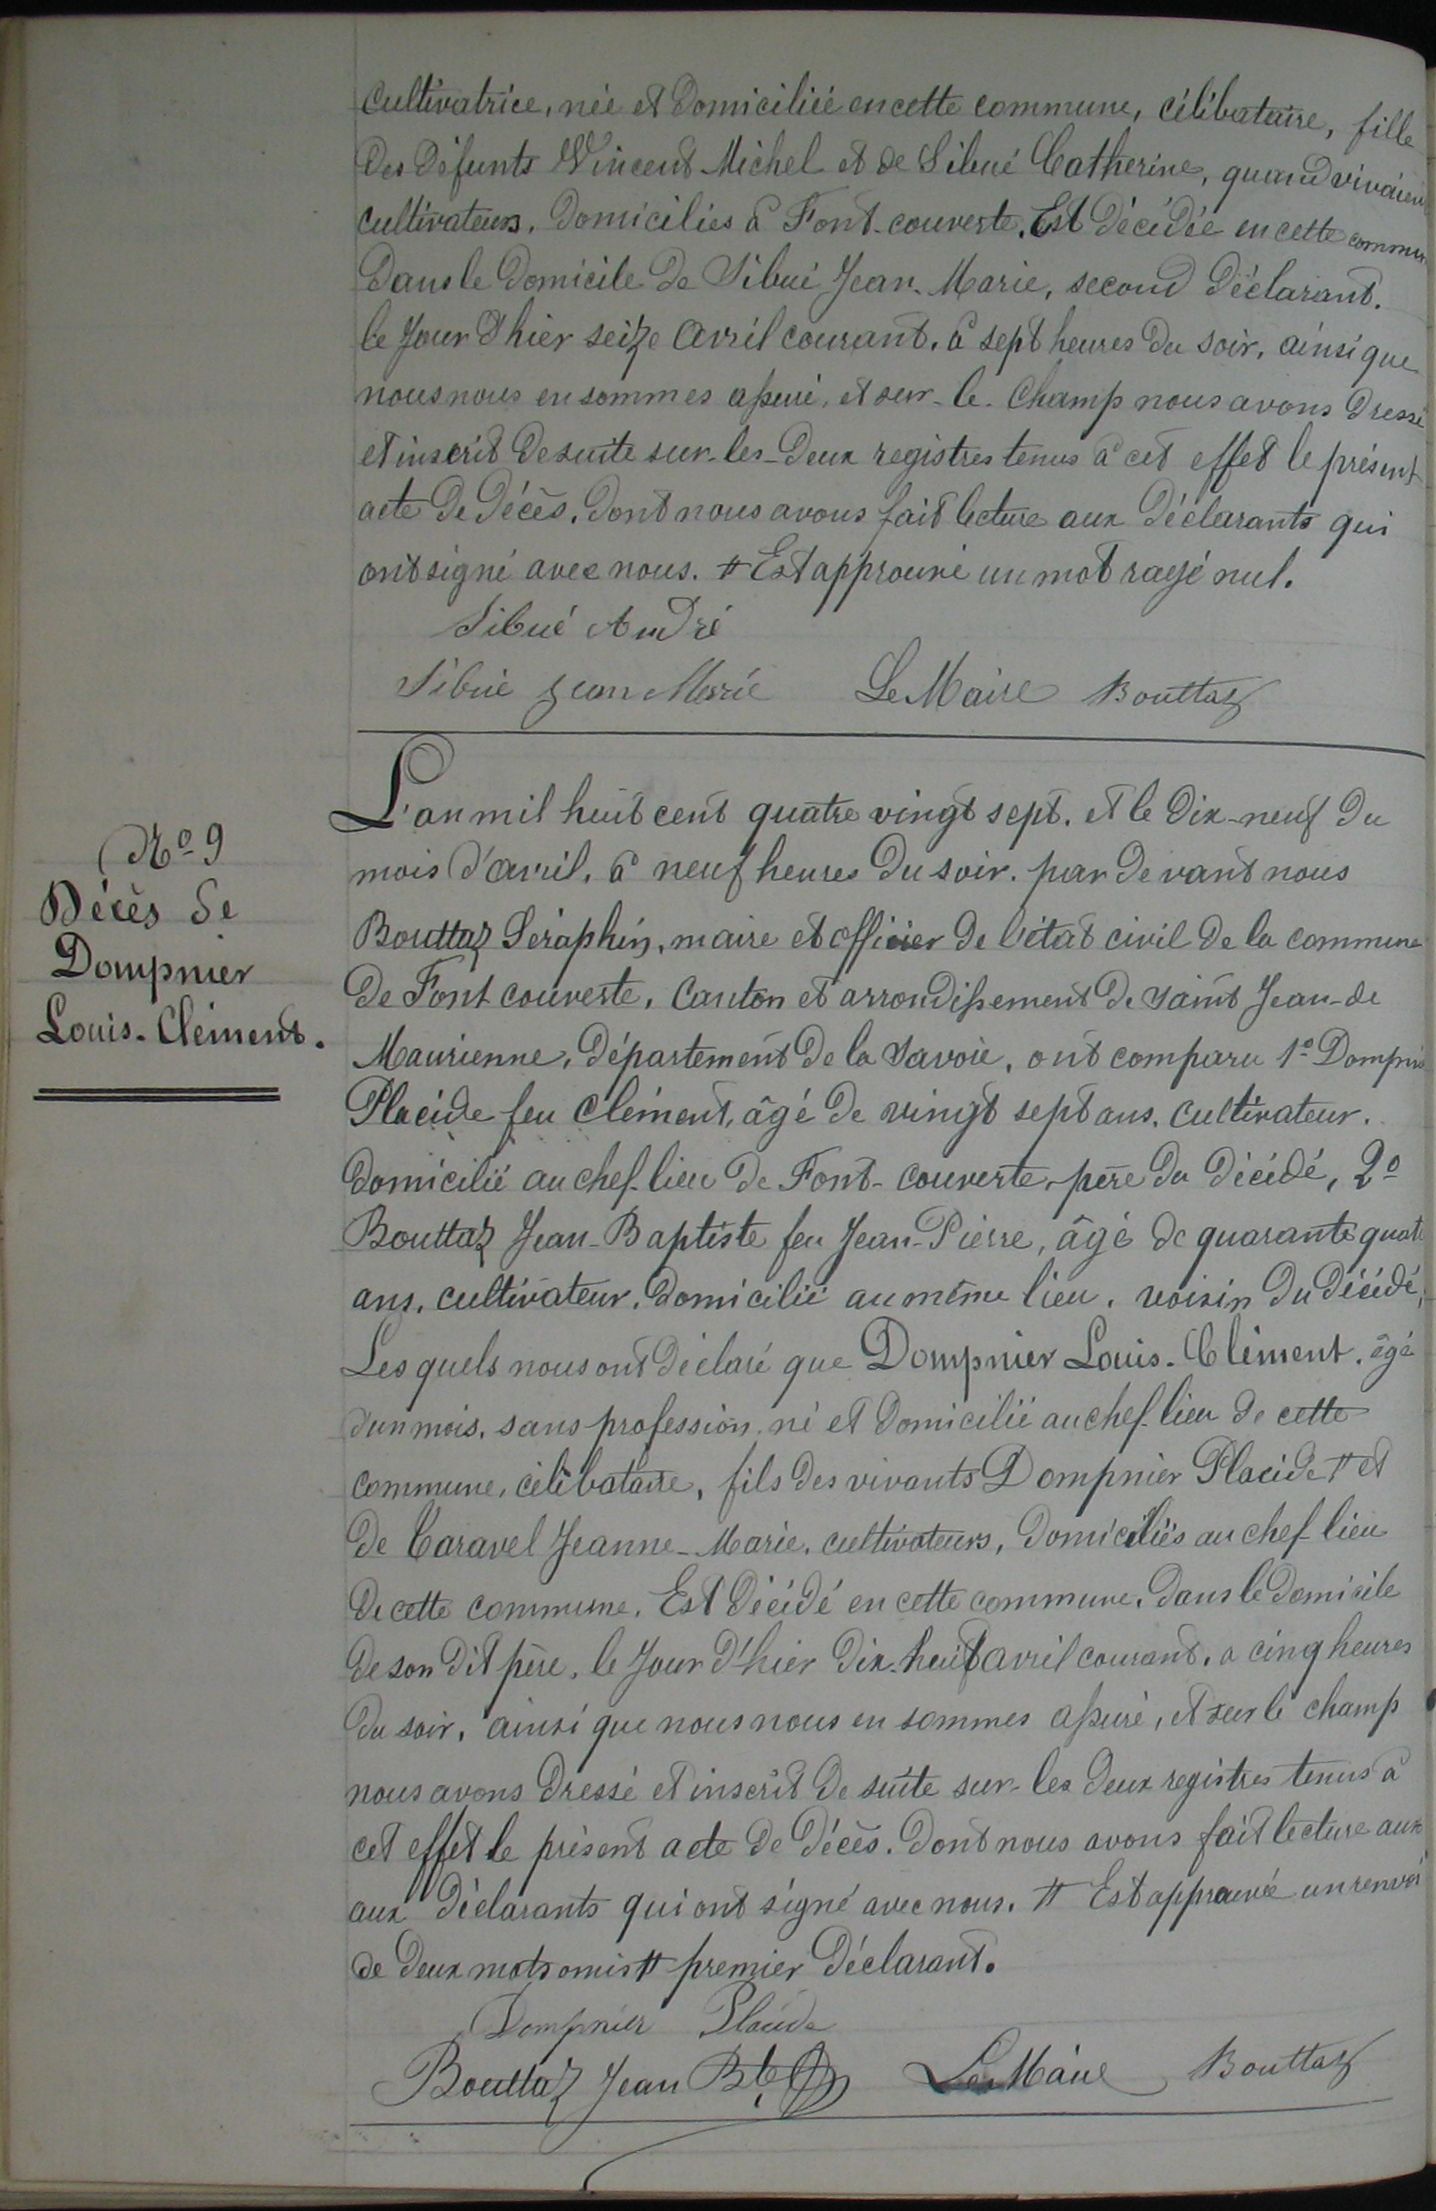 Cultivatrice, née et domiciliée en cette commune, célibataire, fille
des défunts Vincent Michel et de Sibué Catherine, quand vivaient
cultivateurs, domiciliés à Font-couverte. Est décédée en cette commun
dans le domicile de Sibué Jean-Marie, second déclarant.
le jour d'hier seize avril courant, à sept heures du soir, ainsi que
nous nous en sommes assuré, et sur-le-champ nous avons dressé
et inscrit de suite sur-les-deux registres tenus à cet effet le présent
acte de décès, dont nous avons fait lecture aux déclarants qui
ont signé avec nous. # Est approuvé un mot rayé nul.
Sibué André
Sibué Jean Marie Le Maire Bouttaz
L'an mil huit cent quatre vingt sept, et le dix-neuf du
mois d'avril, à neuf heures du soir, par devant nous
Bouttaz Séraphin, maire et officier de l'état civil de la commune
de Font couverte, Canton et arrondissement de Saint Jean-de
Maurienne, département de la Savoie, ont comparu 1º Dompnier
Placide feu Clément, âgé de vingt sept ans, cultivateur.
domicilié au chef-lieu de Font-couverte, père du décédé, 2º
Bouttaz Jean-Baptiste feu Jean-Pierre, âgé de quarante quat
ans, cultivateur, domicilié au même lieu, voisin du décédé,
Les quels nous ont déclaré que Dompnier Louis-Clément, âgé
d'un mois, sans profession, né et domicilié au chef-lieu de cette
commune, célibataire, fils des vivants Dompnier Placide # et
de Caravel Jeanne-Marie, cultivateurs, domiciliés au chef lieu
de cette commune, Est décédé en cette commune, dans le domicile
de son dit père, le jour d'hier dix-huit avril courant, à cinq heures
du soir, ainsi que nous nous en sommes assuré, et sur le champ
nous avons dressé et inscrit de suite sur-les deux registres tenus à
cet effet le présent acte de décès, dont nous avons fait lecture aux
aux déclarants qui ont signé avec nous. # Est approuvé un renvoi
de deux mots omis # premier déclarant.
Dompnier Placide
Bouttaz Jean Bte Le Maire Bouttaz
Nº 9
Décès de
Dompnier
Louis-Clément.